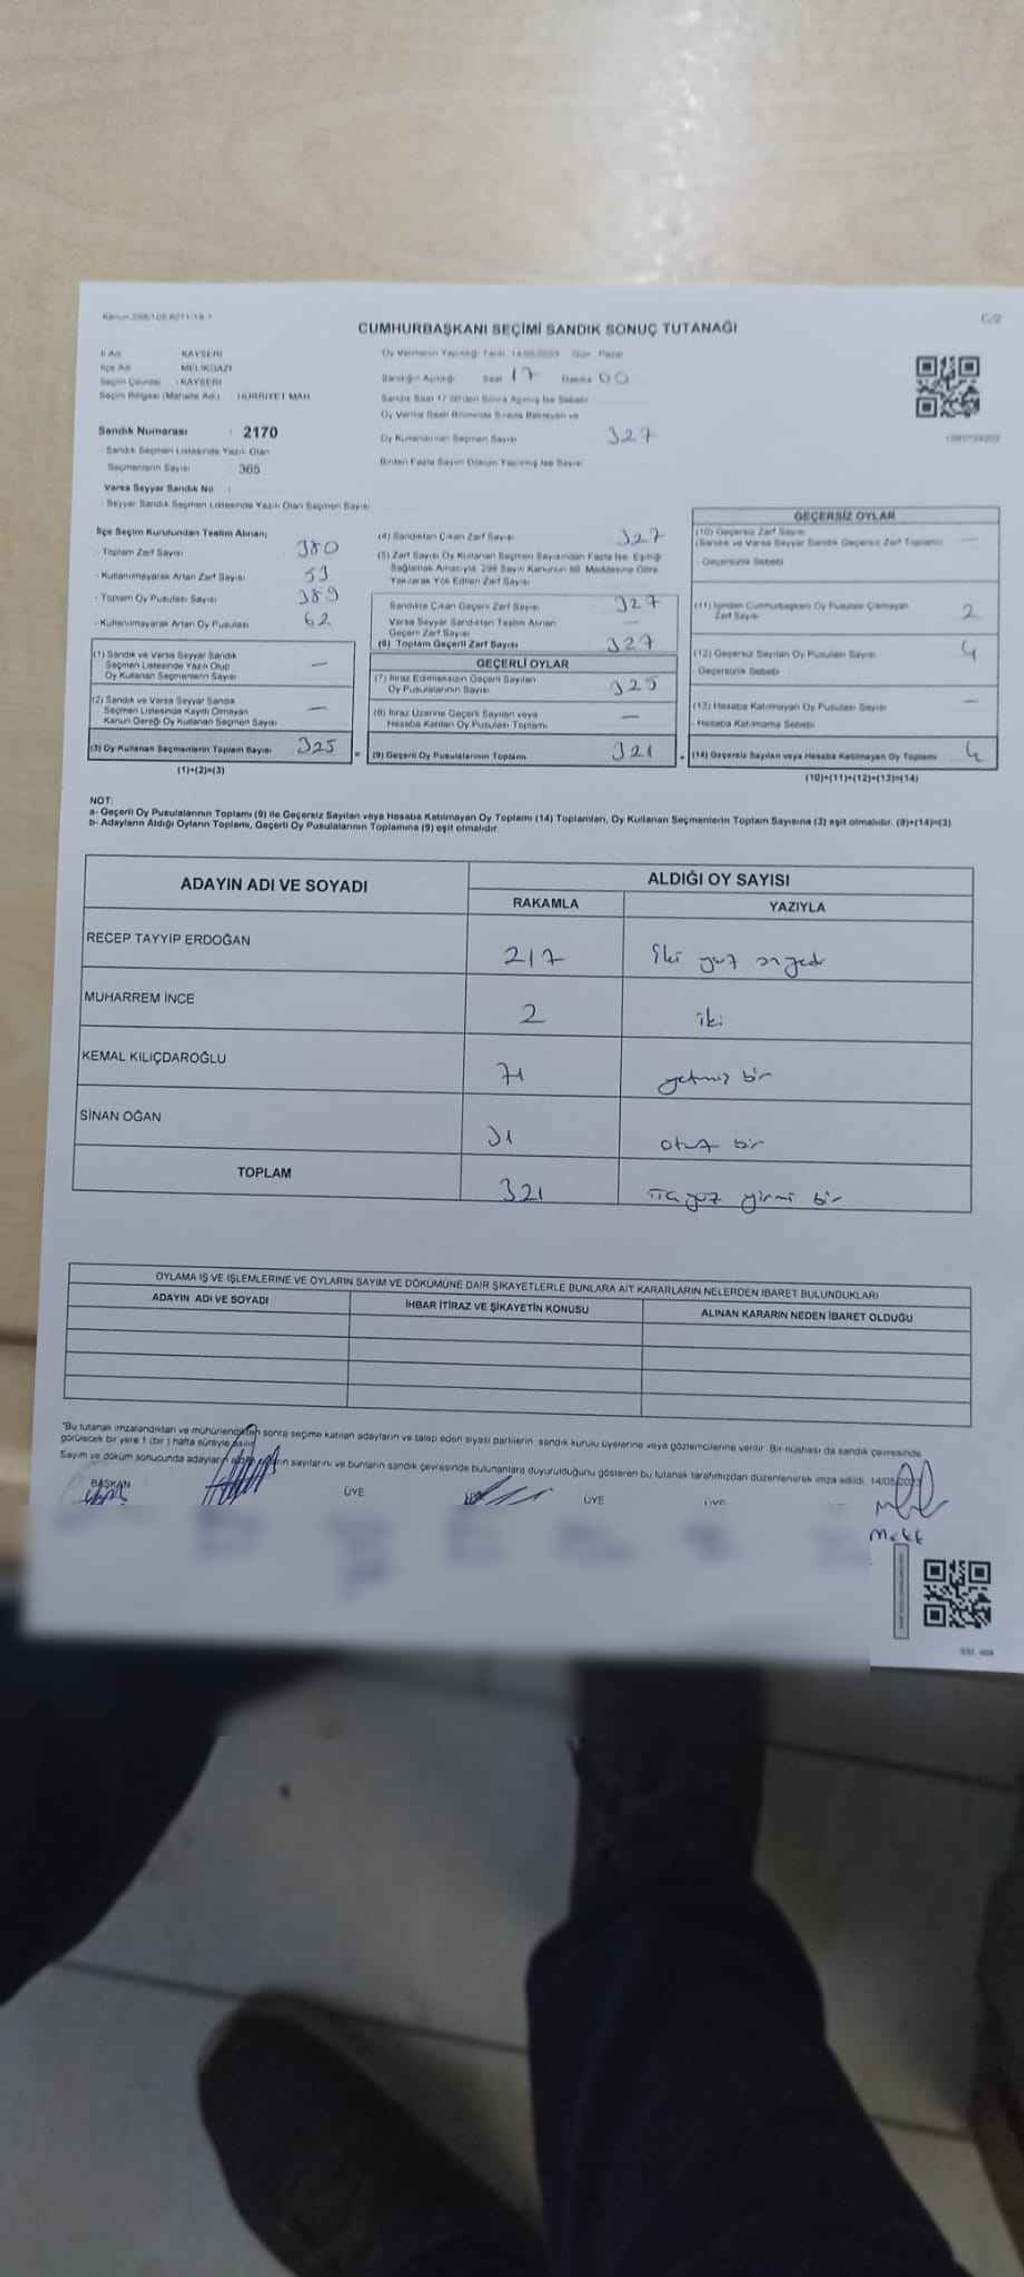 Kanun 298/105 6271/19-1
C/2
CUMHURBAŞKANI SEÇİMİ SANDIK SONUÇ TUTANAĞI
İl Adı KAYSERİ
İlçe Adı MELİKGAZİ
Seçim Çevresi : KAYSERİ
Seçim Bölgesi (Mahalle Adı) HÜRRİYET MAH
Sandık Numarası : 2170
Sandık Seçmen Listesinde Yazılı Olan
Seçmenlerin Sayısı 365
Varsa Seyyar Sandık No :
Seyyar Sandık Seçmen Listesinde Yazılı Olan Seçmen Sayısı
Oy Vermenin Yapıldığı Tarih 14/05/2023 Gün Pazar
Sandığın Açıldığı Saat 17 Dakika 00
Sandık Saat 17'den Sonra Açılmış İse Sebebi
Oy Verme Saati Bitiminde Sırada Bekleyen ve
Oy Kullandırılan Seçmen Sayısı 327
Birden Fazla Sayım Döküm Yapılmış İse Sayısı
İlçe Seçim Kurulundan Teslim Alınan;
- Toplam Zarf Sayısı 380
- Kullanılmayarak Artan Zarf Sayısı 53
- Toplam Oy Pusulası Sayısı 389
- Kullanılmayarak Artan Oy Pusulası 62
(1) Sandık ve Varsa Seyyar Sandık
Seçmen Listesinde Yazılı Olup
Oy Kullanan Seçmenlerin Sayısı —
(2) Sandık ve Varsa Seyyar Sandık
Seçmen Listesinde Kayıtlı Olmayan
Kanun Gereği Oy Kullanan Seçmen Sayısı —
(3) Oy Kullanan Seçmenlerin Toplam Sayısı 325
(1)+(2)=(3)
(4) Sandıktan Çıkan Zarf Sayısı 327
(5) Zarf Sayısı Oy Kullanan Seçmen Sayısından Fazla İse, Eşitliği
Sağlamak Amacıyla 298 Sayılı Kanunun 98. Maddesine Göre
Yakılarak Yok Edilen Zarf Sayısı
Sandıkta Çıkan Geçerli Zarf Sayısı 327
Varsa Seyyar Sandıktan Teslim Alınan
Geçerli Zarf Sayısı —
(6) Toplam Geçerli Zarf Sayısı 327
GEÇERLİ OYLAR
(7) İtiraz Edilmeksizin Geçerli Sayılan
Oy Pusulalarının Sayısı 325
(8) İtiraz Üzerine Geçerli Sayılan veya
Hesaba Katılan Oy Pusulası Toplamı —
= (9) Geçerli Oy Pusulalarının Toplamı 321
GEÇERSİZ OYLAR
(10) Geçersiz Zarf Sayısı
(Sandık ve Varsa Seyyar Sandık Geçersiz Zarf Toplamı) —
- Geçersizlik Sebebi
(11) İçinden Cumhurbaşkanı Oy Pusulası Çıkmayan
Zarf Sayısı 2
(12) Geçersiz Sayılan Oy Pusulası Sayısı 4
- Geçersizlik Sebebi
(13) Hesaba Katılmayan Oy Pusulası Sayısı —
- Hesaba Katılmama Sebebi
+ (14) Geçersiz Sayılan veya Hesaba Katılmayan Oy Toplamı 4
(10)+(11)+(12)+(13)=(14)
NOT:
a- Geçerli Oy Pusulalarının Toplamı (9) ile Geçersiz Sayılan veya Hesaba Katılmayan Oy Toplamı (14) Toplamları, Oy Kullanan Seçmenlerin Toplam Sayısına (3) eşit olmalıdır. (9)+(14)=(3)
b- Adayların Aldığı Oyların Toplamı, Geçerli Oy Pusulalarının Toplamına (9) eşit olmalıdır.
ADAYIN ADI VE SOYADI ALDIĞI OY SAYISI
RAKAMLA YAZIYLA
RECEP TAYYİP ERDOĞAN 217 iki yüz onyedi
MUHARREM İNCE 2 iki
KEMAL KILIÇDAROĞLU 71 yetmiş bir
SİNAN OĞAN 31 otuz bir
TOPLAM 321 üçyüz yirmi bir
OYLAMA İŞ VE İŞLEMLERİNE VE OYLARIN SAYIM VE DÖKÜMÜNE DAİR ŞİKAYETLERLE BUNLARA AİT KARARLARIN NELERDEN İBARET BULUNDUKLARI
ADAYIN ADI VE SOYADI İHBAR İTİRAZ VE ŞİKAYETİN KONUSU ALINAN KARARIN NEDEN İBARET OLDUĞU
"Bu tutanak imzalandıktan ve mühürlendikten sonra seçime katılan adayların ve talep eden siyasi partilerin sandık kurulu üyelerine veya gözlemcilerine verilir. Bir nüshası da sandık çevresinde
görülecek bir yere 1 (bir) hafta süreyle asılır.
Sayım ve döküm sonucunda adayların aldığı oyların sayılarını ve bunların sandık çevresinde bulunanlara duyurulduğunu gösteren bu tutanak tarafımızdan düzenlenerek imza edildi. 14/05/2023
BAŞKAN ÜYE ÜYE ÜYE